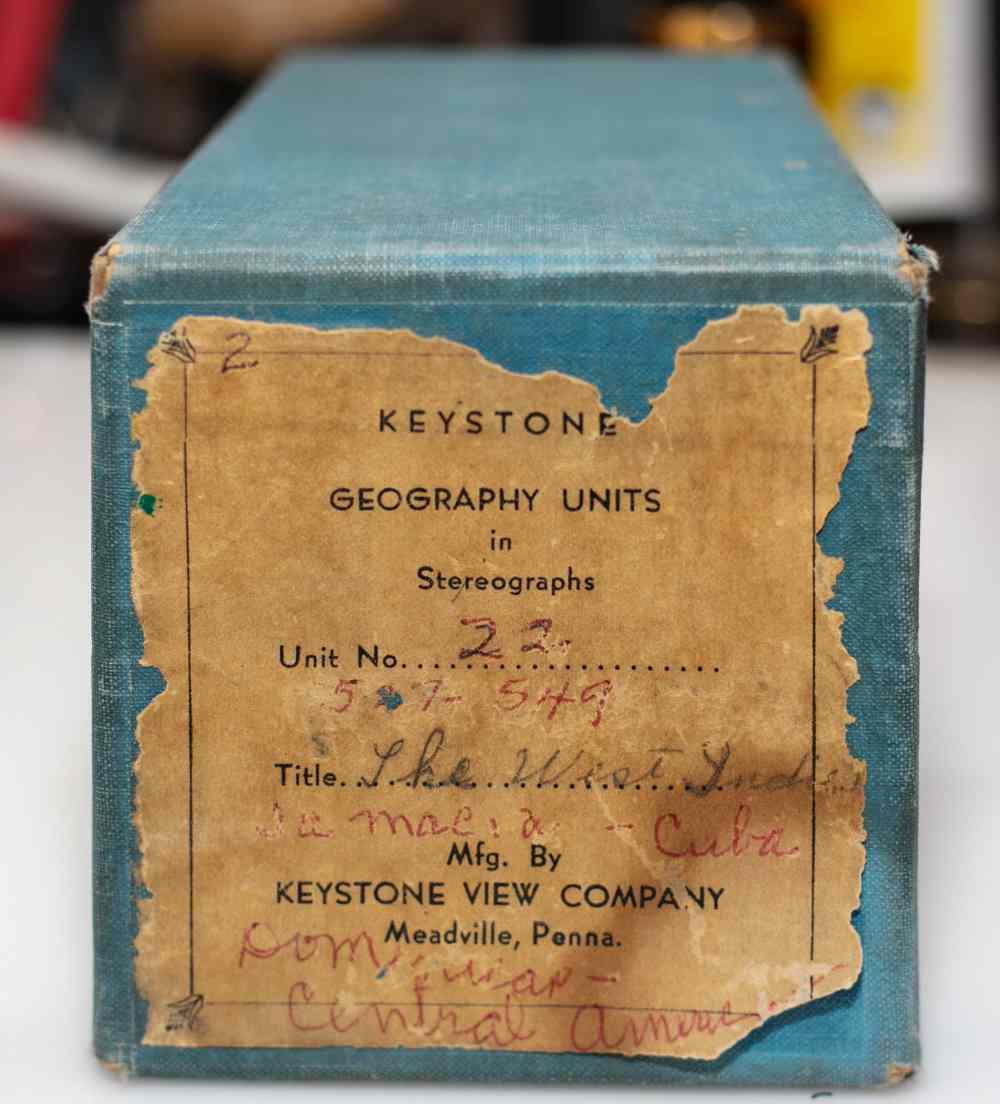 2
KEYSTONE
GEOGRAPHY UNITS
in
Stereographs
Unit No. 22.
549
Title. The West Indies
Jamacia - Cuba
Mfg. By
KEYSTONE VIEW COMPANY
Meadville, Penna.
Dominican -
Central America